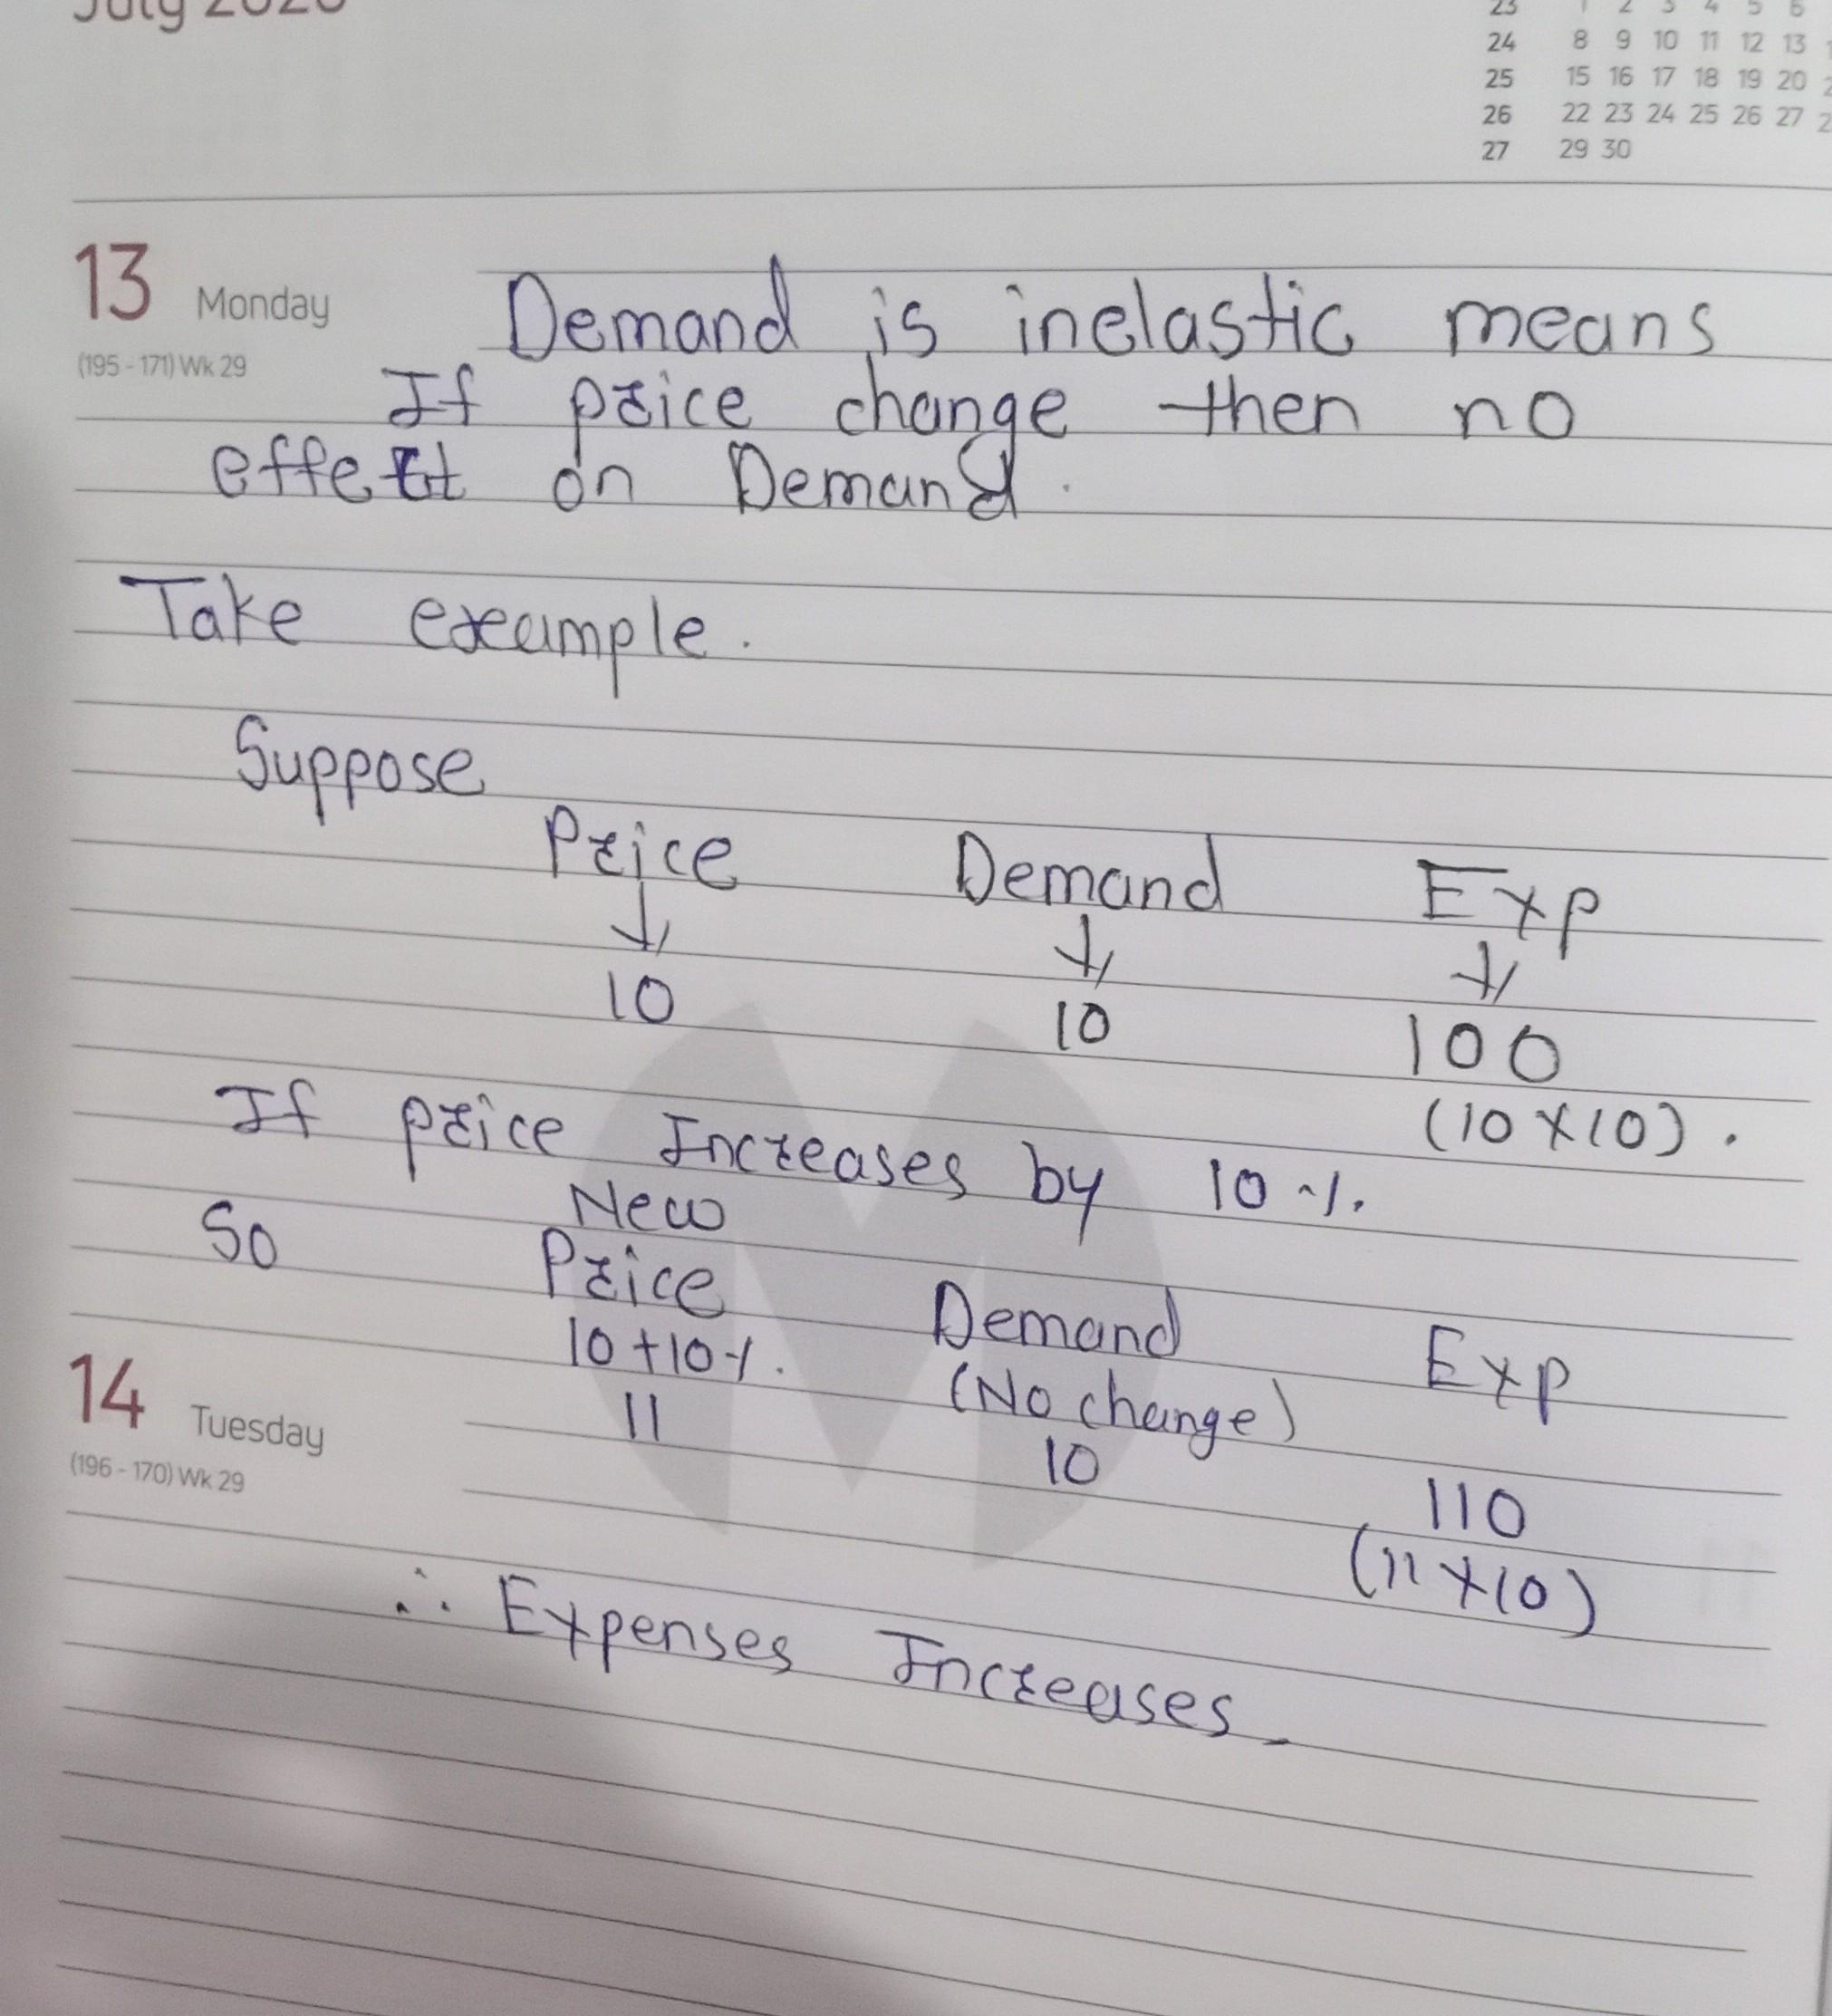 23 1 2 3 4 5 6
24 8 9 10 11 12 13
25 15 16 17 18 19 20
26 22 23 24 25 26 27
27 29 30
13 Monday
(195 - 171) Wk 29
Demand is inelastic means
If price change then no
effect on Demand.
Take example.
Suppose
Price Demand Exp
↓ ↓ ↓
10 10 100
(10 × 10).
If price Increases by 10 %.
So New
Price Demand Exp
10 + 10%. (No change)
11 10 110
(11 × 10)
14 Tuesday
(196 - 170) Wk 29
∴ Expenses Increases